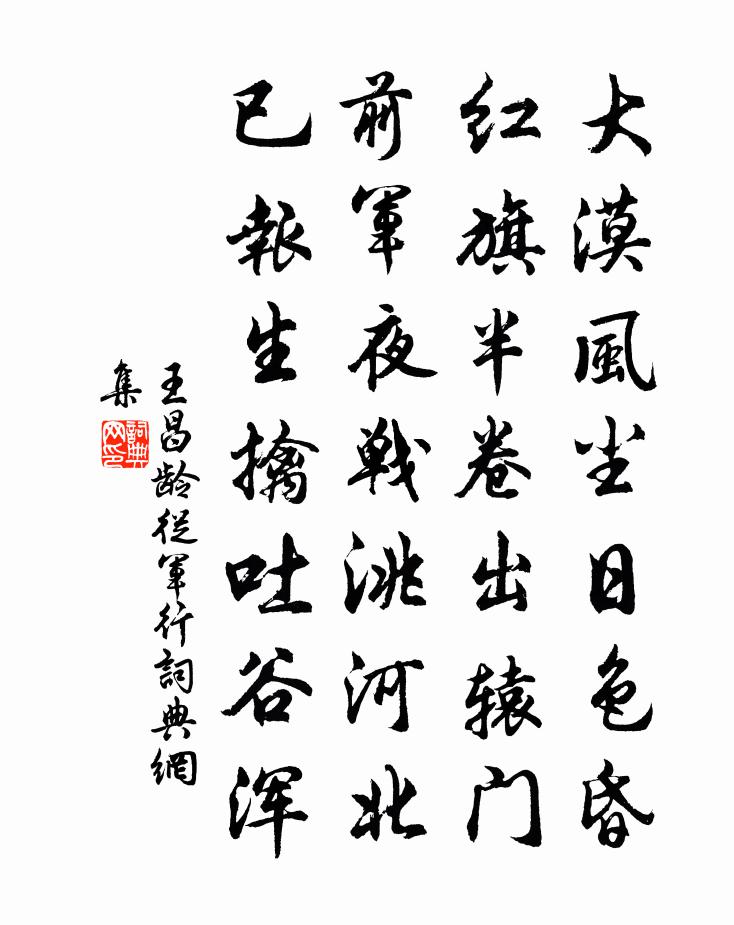 大漠風尘日色昏
红旗半卷出辕门
前軍夜戦洮河北
已報生擒吐谷浑
王昌龄從軍行詞典網
集
詞典
网印